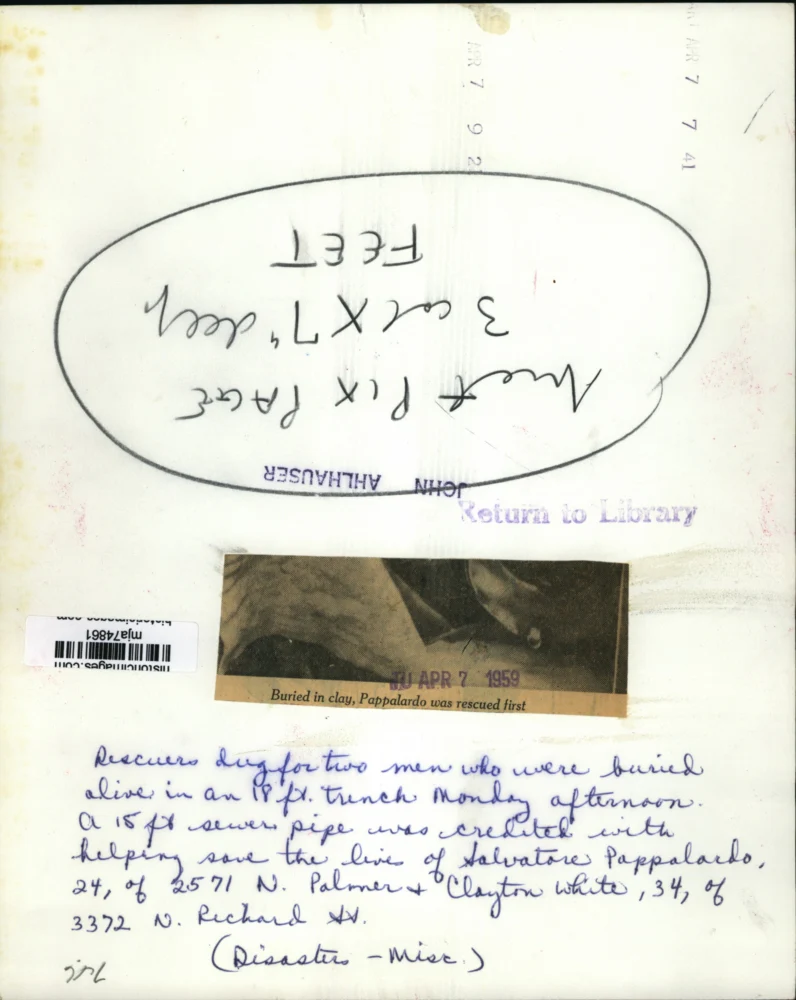 APR 7 9 2
APR 7 7 41
FEET
3 col X 7" deep
PIX PAGE
JOHN AHLHAUSER
Return to Library
historicimages.com
mja74861
historicimages.com
JU APR 7 1959
Buried in clay, Pappalardo was rescued first
Rescuers dug for two men who were buried
alive in an 18 ft. trench Monday afternoon.
A 15 ft sewer pipe was credited with
helping save the lives of Salvatore Pappalardo,
24, of 2571 N. Palmer + Clayton White, 34, of
3372 N. Richard St.
(Disasters - Misc.)